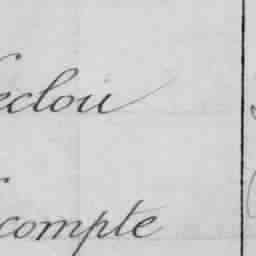 eclou
compte